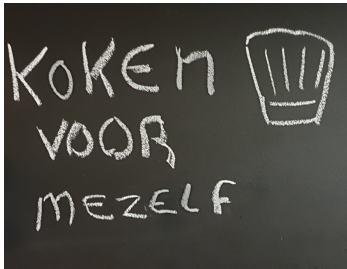 KOKEN
VOOR
MEZELF